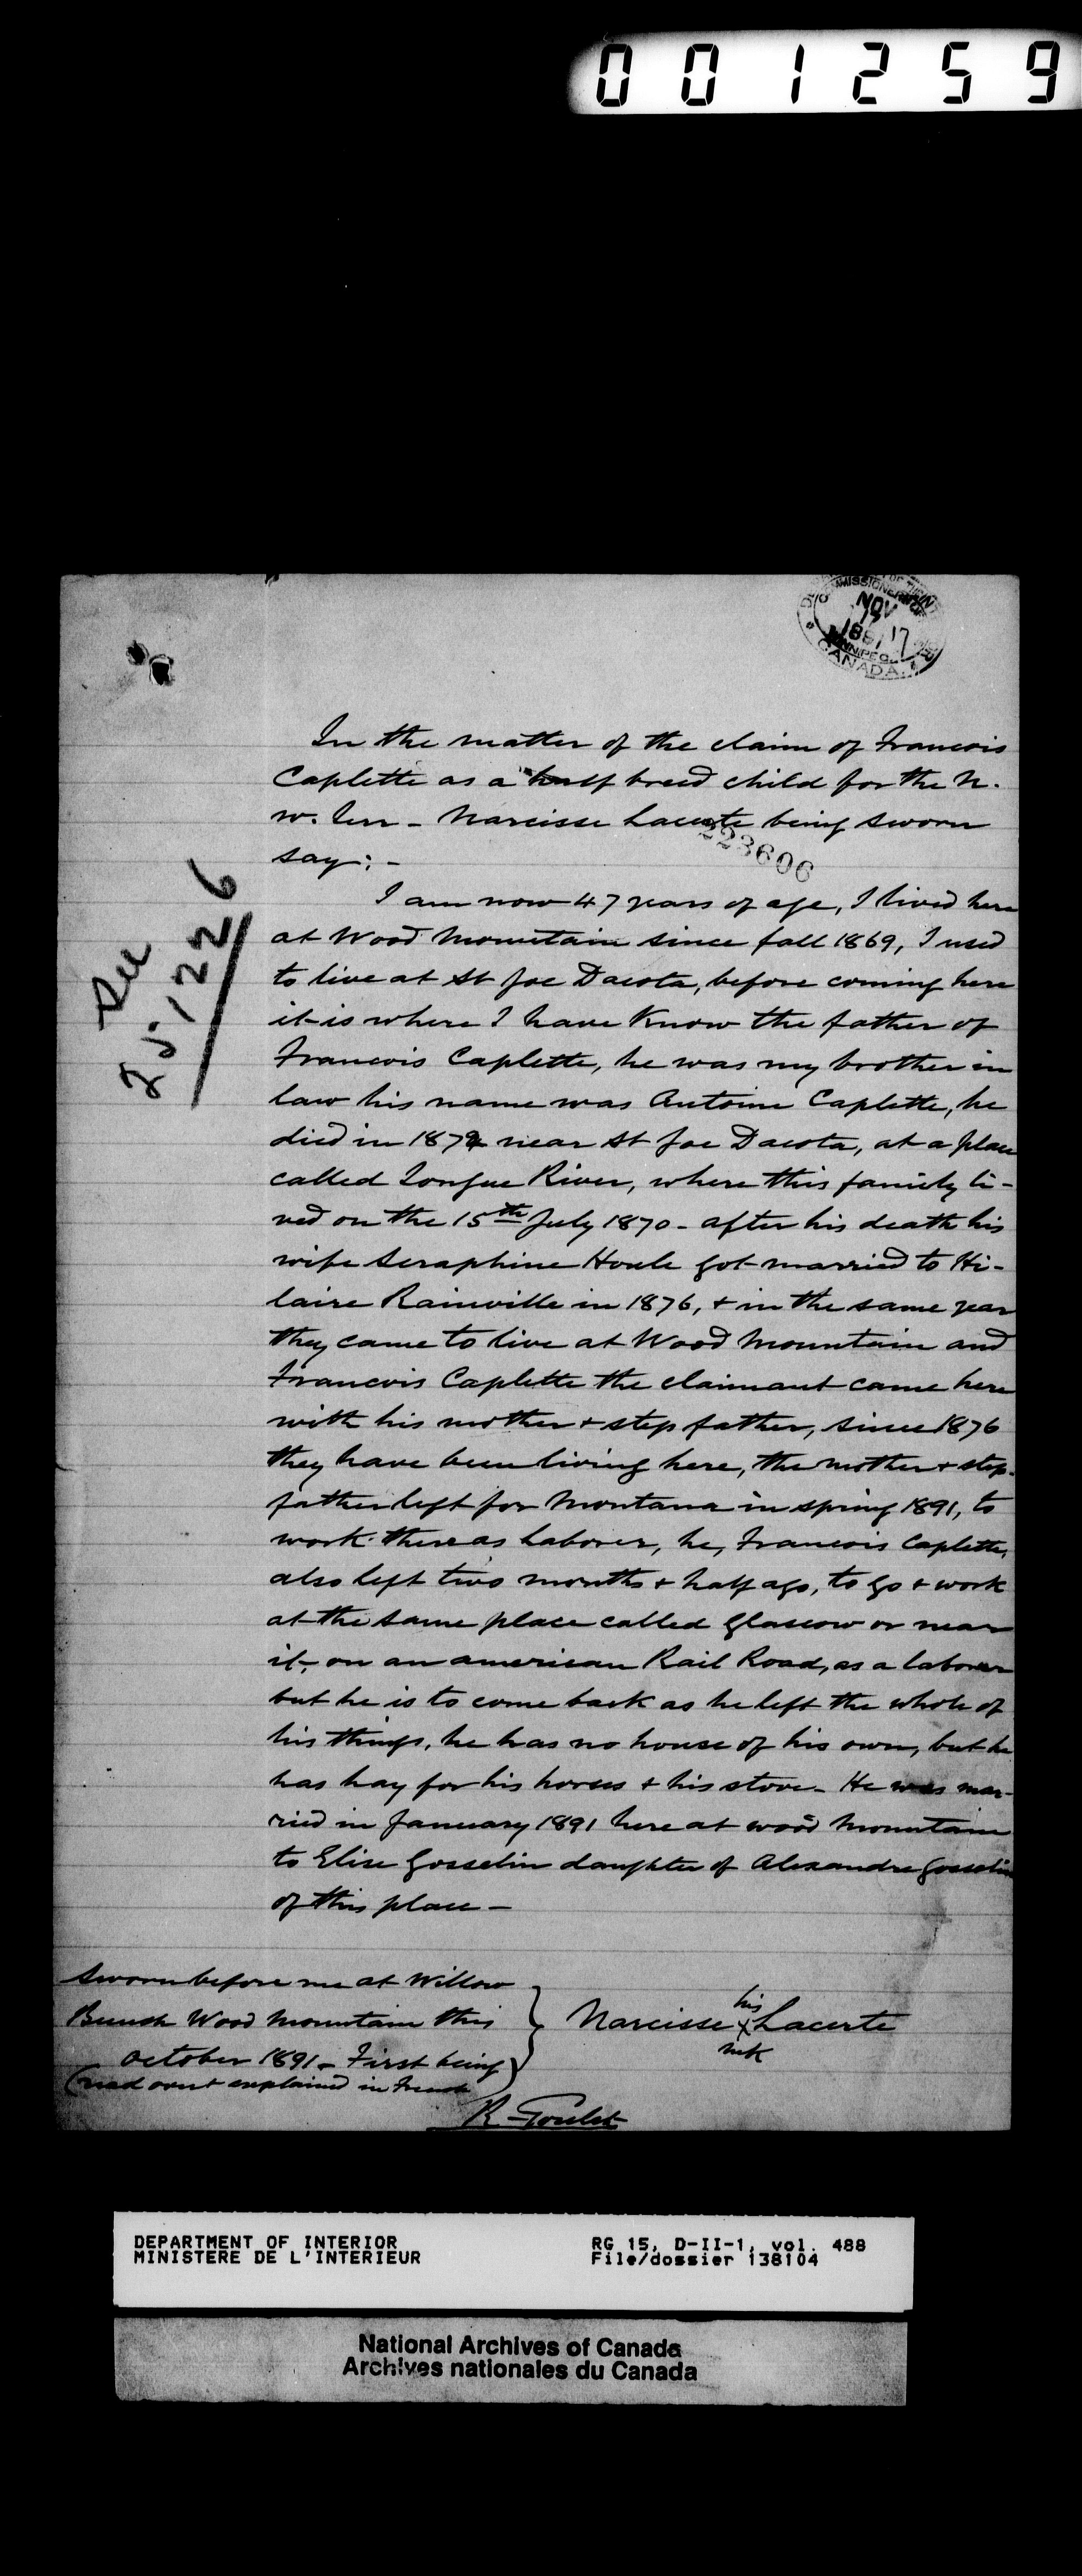 001259
NOV
CANADA
In the matter of the claim of Francois
Caplette as a half breed child for the N.
W. Terr - Narcisse Lacerte being sworn
223606
say: -
I am now 47 years of age, I lived here
at Wood Mountain since fall 1869, I used
to live at St Joe Dacota, before coming here
it is where I have Know the father of
Francois Caplette, he was my brother in
law his name was Antoine Caplette, he
died in 1872 near St Joe Dacota, at a place
called Tongue River, where this family li-
ved on the 15th July 1870 - after his death his
wife Seraphine Houle got married to Hi-
laire Rainville in 1876, + in the same year
they came to live at Wood Mountain and
Francois Caplette the claimant came here
with his mother + step father, since 1876
they have been living here, the mother + step-
father left for Montana in spring 1891, to
work there as Laborer, he, Francois Caplette,
also left two months + half ago, to go + work
at the same place called Glascow or near
it, on an american Rail Road, as a laborer
but he is to come back as he left the whole of
his things, he has no house of his own, but he
has hay for his horses + his stove - He was mar-
ried in January 1891 here at wood Mountain
to Elise Gosselin daughter of Alexandre Gosselin
of this place -
See
Sworn before me at Willow
Bunch Wood Mountain this
october 1891 - First being
(read over + explained in French
his
Narcisse X Lacerte
mk
R. Goulet
DEPARTMENT OF INTERIOR
MINISTERE DE L'INTERIEUR
RG 15, D-II-1, vol. 488
File/dossier 138104
National Archives of Canada
Archives nationales du Canada